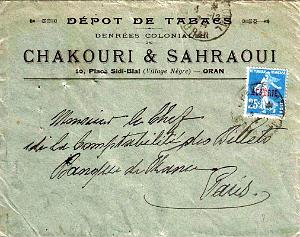 DÉPOT DE TABACS
DENRÉES COLONIALES
CHAKOURI & SAHRAOUI
10, Place Sidi-Blal (Village Nègre) — ORAN
ALGÉRIE
25c
Monsieur le Chef
de la Comptabilité des Billets
Banque de France
Paris